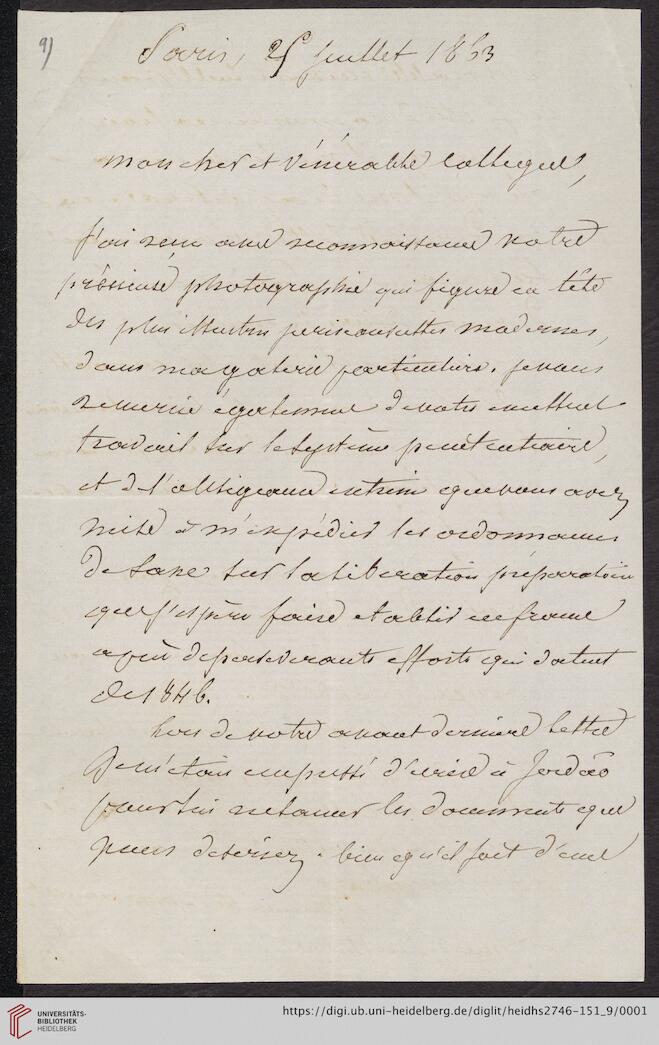 9)
Paris, 25 juillet 1863
Mon cher et vénérable collegue,
J'ai recu avec reconnaissance votre
précieuse photographie qui figure en tête
des plus illustres
modernes,
dans ma galerie particuliere. Je vous
remercie également de votre excellent
travail sur le système penitentiaire,
et de l'obligeance extreme que vous avez
mise à m'expédier les ordonnances
de Saxe sur la liberation préparatoire
que j'espère faire etablir en france
après de perseverants efforts qui datent
de 1846.
Lors de votre avant derniere lettre
je m'étais empressé d'écrire à Jordão
pour lui reclamer les documents que
vous desirez. bien qu'il soit d'une
UNIVERSITÄTS-
BIBLIOTHEK
HEIDELBERG
https://digi.ub.uni-heidelberg.de/diglit/heidhs2746-151_9/0001